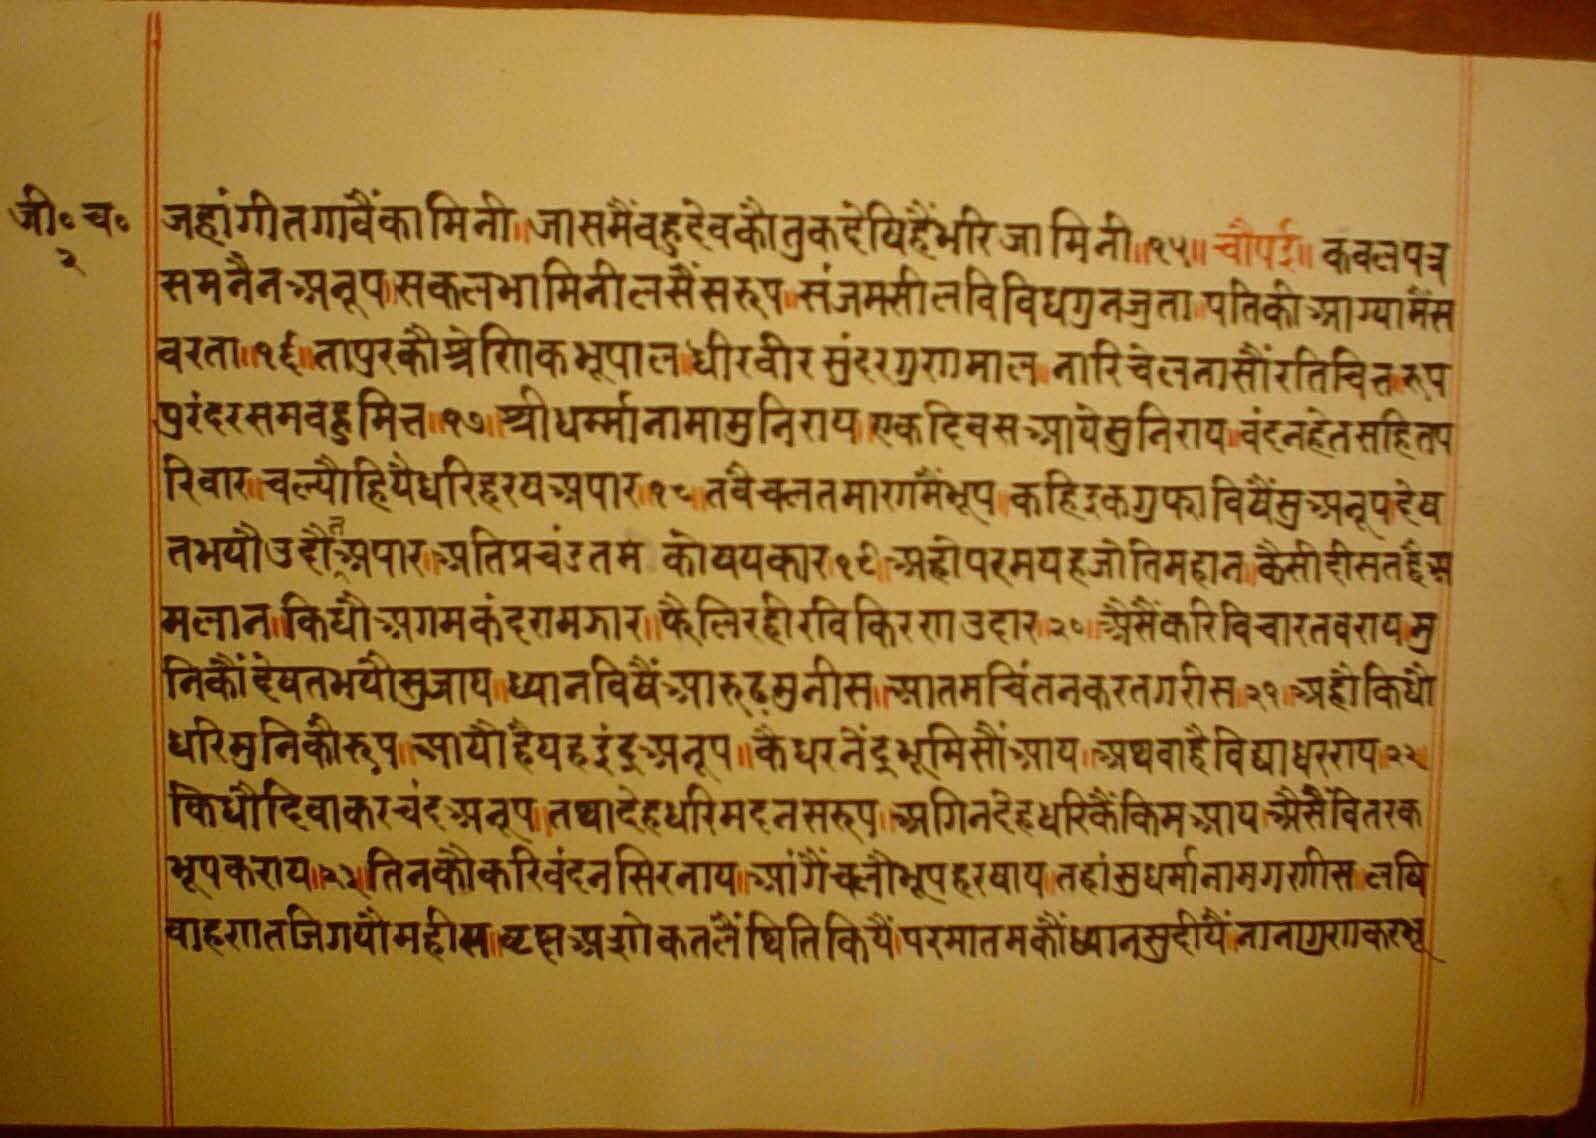 जी॰ च॰
२
जहांगीतगावैंकामिनी॥जासमैंवहुदेवकौतुकदेषिहैंभरिजामिनी॥१५॥चौपई॥ कवलपत्र
समनैनअनूप।सकलभामिनीलसैंसरूप॥संजमसीलविविधगुनजुता।पतिकीआग्यामैंस
वरता॥१६॥तापुरकौश्रेणिकभूपाल।धीरवीरसुंदरगुणमाल।नारिचेलनासौंरतिचित्त।रूप
पुरंदरसमवहुमित्त॥१७॥श्रीधर्म्मानामामुनिराय।एकदिवसआयेमुनिराय।वंदनहेतसहितप
रिवार॥चल्यौहियैधरिहरषअपार॥१८॥तवैचलतमारगमैंभूप।कहिइकगुफाविषैंसुअनूप।देष
तभयौउदौतअपार॥अतिप्रचंडतम कोषयकार॥१९॥अहोपरमयहजोतिमहान।कैसीदीसतहैअ
मलान॥किधौअगमकंदरामझार॥फैलिरहीरविकिरणउदार॥२०॥अैसैंकरिविचारतवराय।मु
निकौंदेषतभयौसुजाय॥ध्यानविषैंआरूढमुनीस॥आतमचिंतनकरतगरीस॥२१॥अहौकिधौ
धरिमुनिकौरूप॥आयौहैयहइंद्रअनूप॥कैधरनेंद्रभूमिसौंआय॥अथवाहैविद्याधरराय॥२२॥
किधौदिवाकरचंदअनूप।तथादेहधरिमदनसरूप॥अगिनदेहधरिकैंकिमआय॥अैसैंवितरक
भूपकराय॥२३॥तिनकौकरिवंदनसिरनाय॥आंगैंचलौभूपहरषाय।तहांसुधर्मानामगणीस।लषि
वाहणतजिगयौमहीस॥वृछअशोकतलैंथितिकियैं।परमातमकौंध्यानसुदीयैं॥नानागुणकरभू